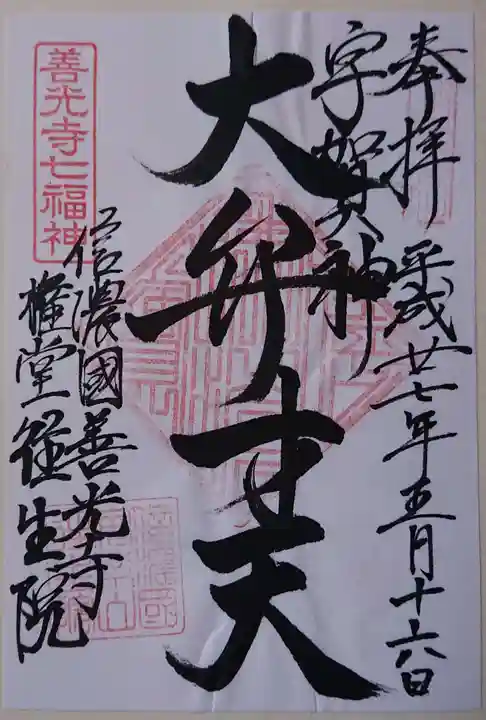 奉拝 平成廿七年五月十六日
宇賀神
大弁才天
信濃國善光寺
権堂 往生院
善光寺七福神
信濃國